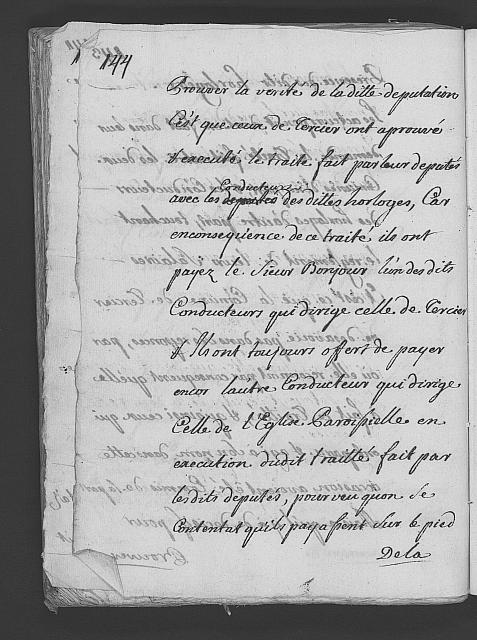 144
Prouver la verite de la ditte deputation
C'est que ceux de Tercier ont aprouvé
& executé le traité fait par leur deputés
Conducteurs
avec les deputés des dittes horloges, Car
en consequence de ce traité ils ont
payez le Sieur Bonjour l'un des dits
Conducteurs qui dirige celle de Tercier
& Ils ont toujours offert de payer
encor l'autre Conducteur qui dirige
Celle de l'Eglise Paroissielle en
execution dudit traitte fait par
les dits deputés, pourveu quon se
Contentat qu'ils payassent Sur le pied
De la